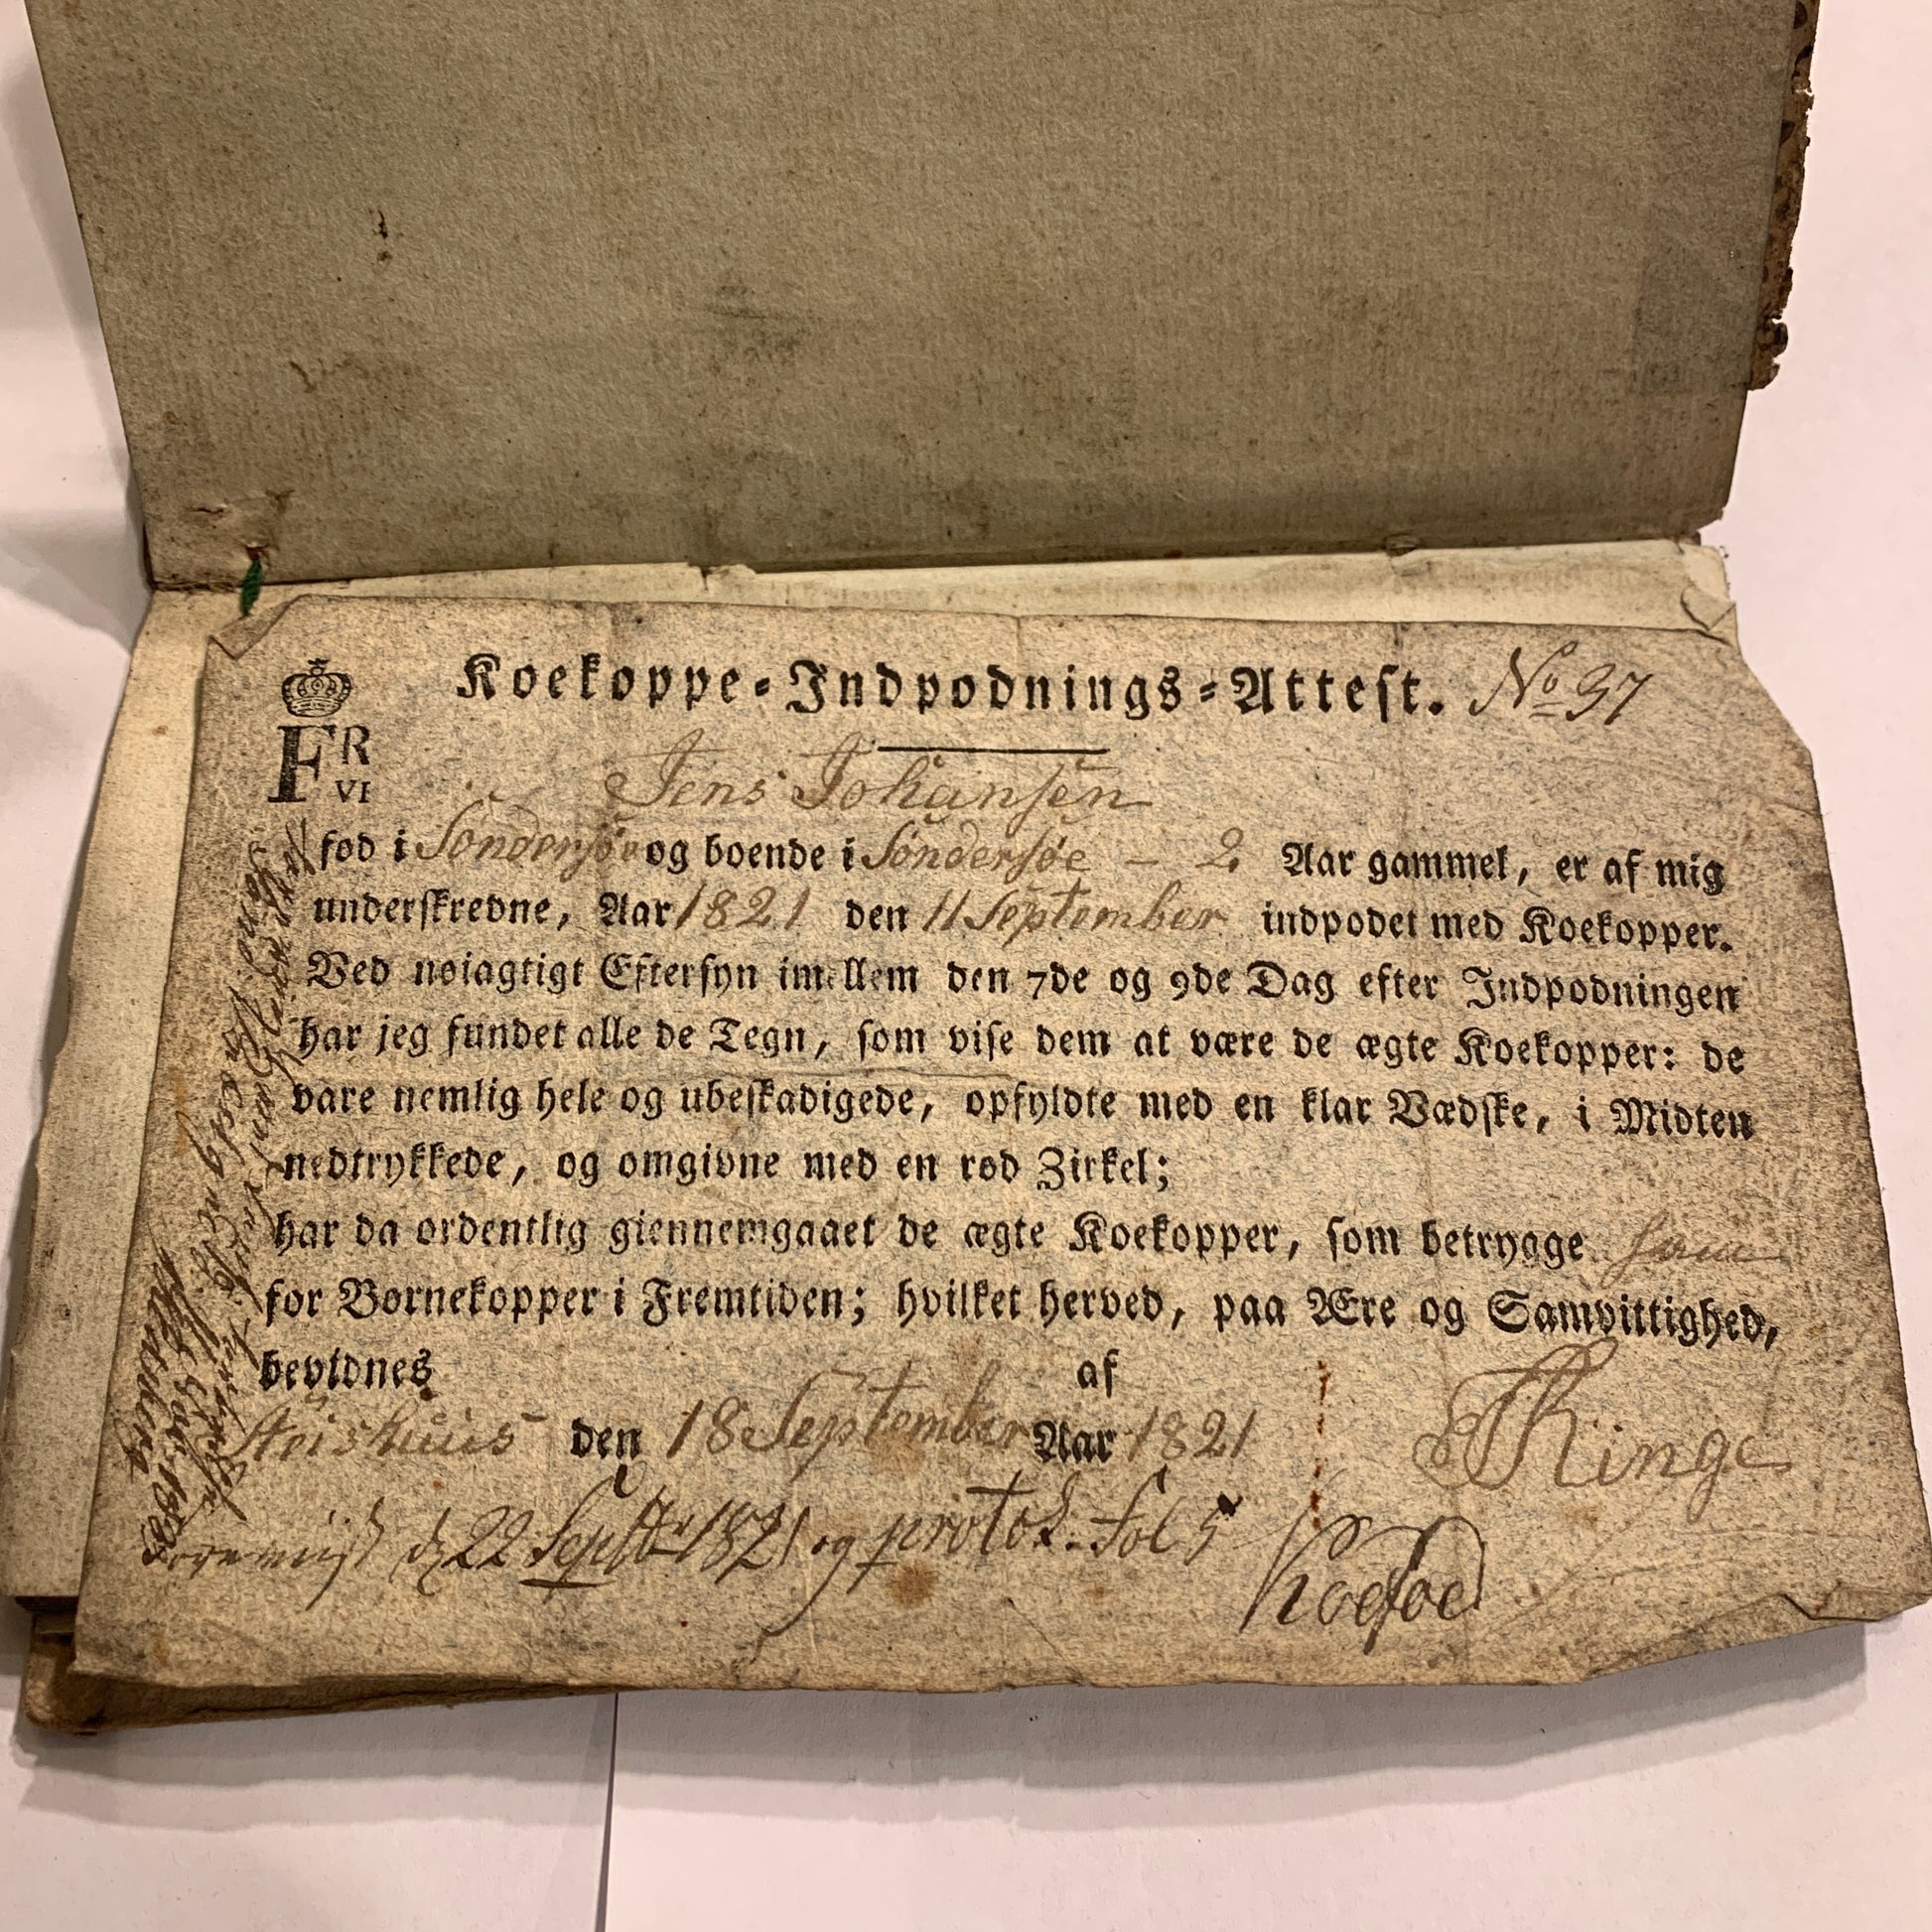 Koekoppe-Indpodnings-Attest. No 37
FR
VI
Jens Johansen
fød i Søndersøe og boende i Søndersøe - 2 Aar gammel, er af mig
underskrevne, Aar 1821 den 11 September indpodet med Koekopper.
Ved nøiagtigt Eftersyn imellem den 7de og 9de Dag efter Indpodningen
har jeg fundet alle de Tegn, som vise dem at være de ægte Koekopper: de
vare nemlig hele og ubeskadigede, opfyldte med en klar Vædske, i Midten
nedtrykkede, og omgivne med en rød Zirkel;
har da ordentlig giennemgaaet de ægte Koekopper, som betrygge ham
for Børnekopper i Fremtiden; hvilket herved, paa Ære og Samvittighed,
bevidnes af
den 18 September Aar 1821 Ringe
22 Septbr 1821 og protok. Fol 5
Koefoed